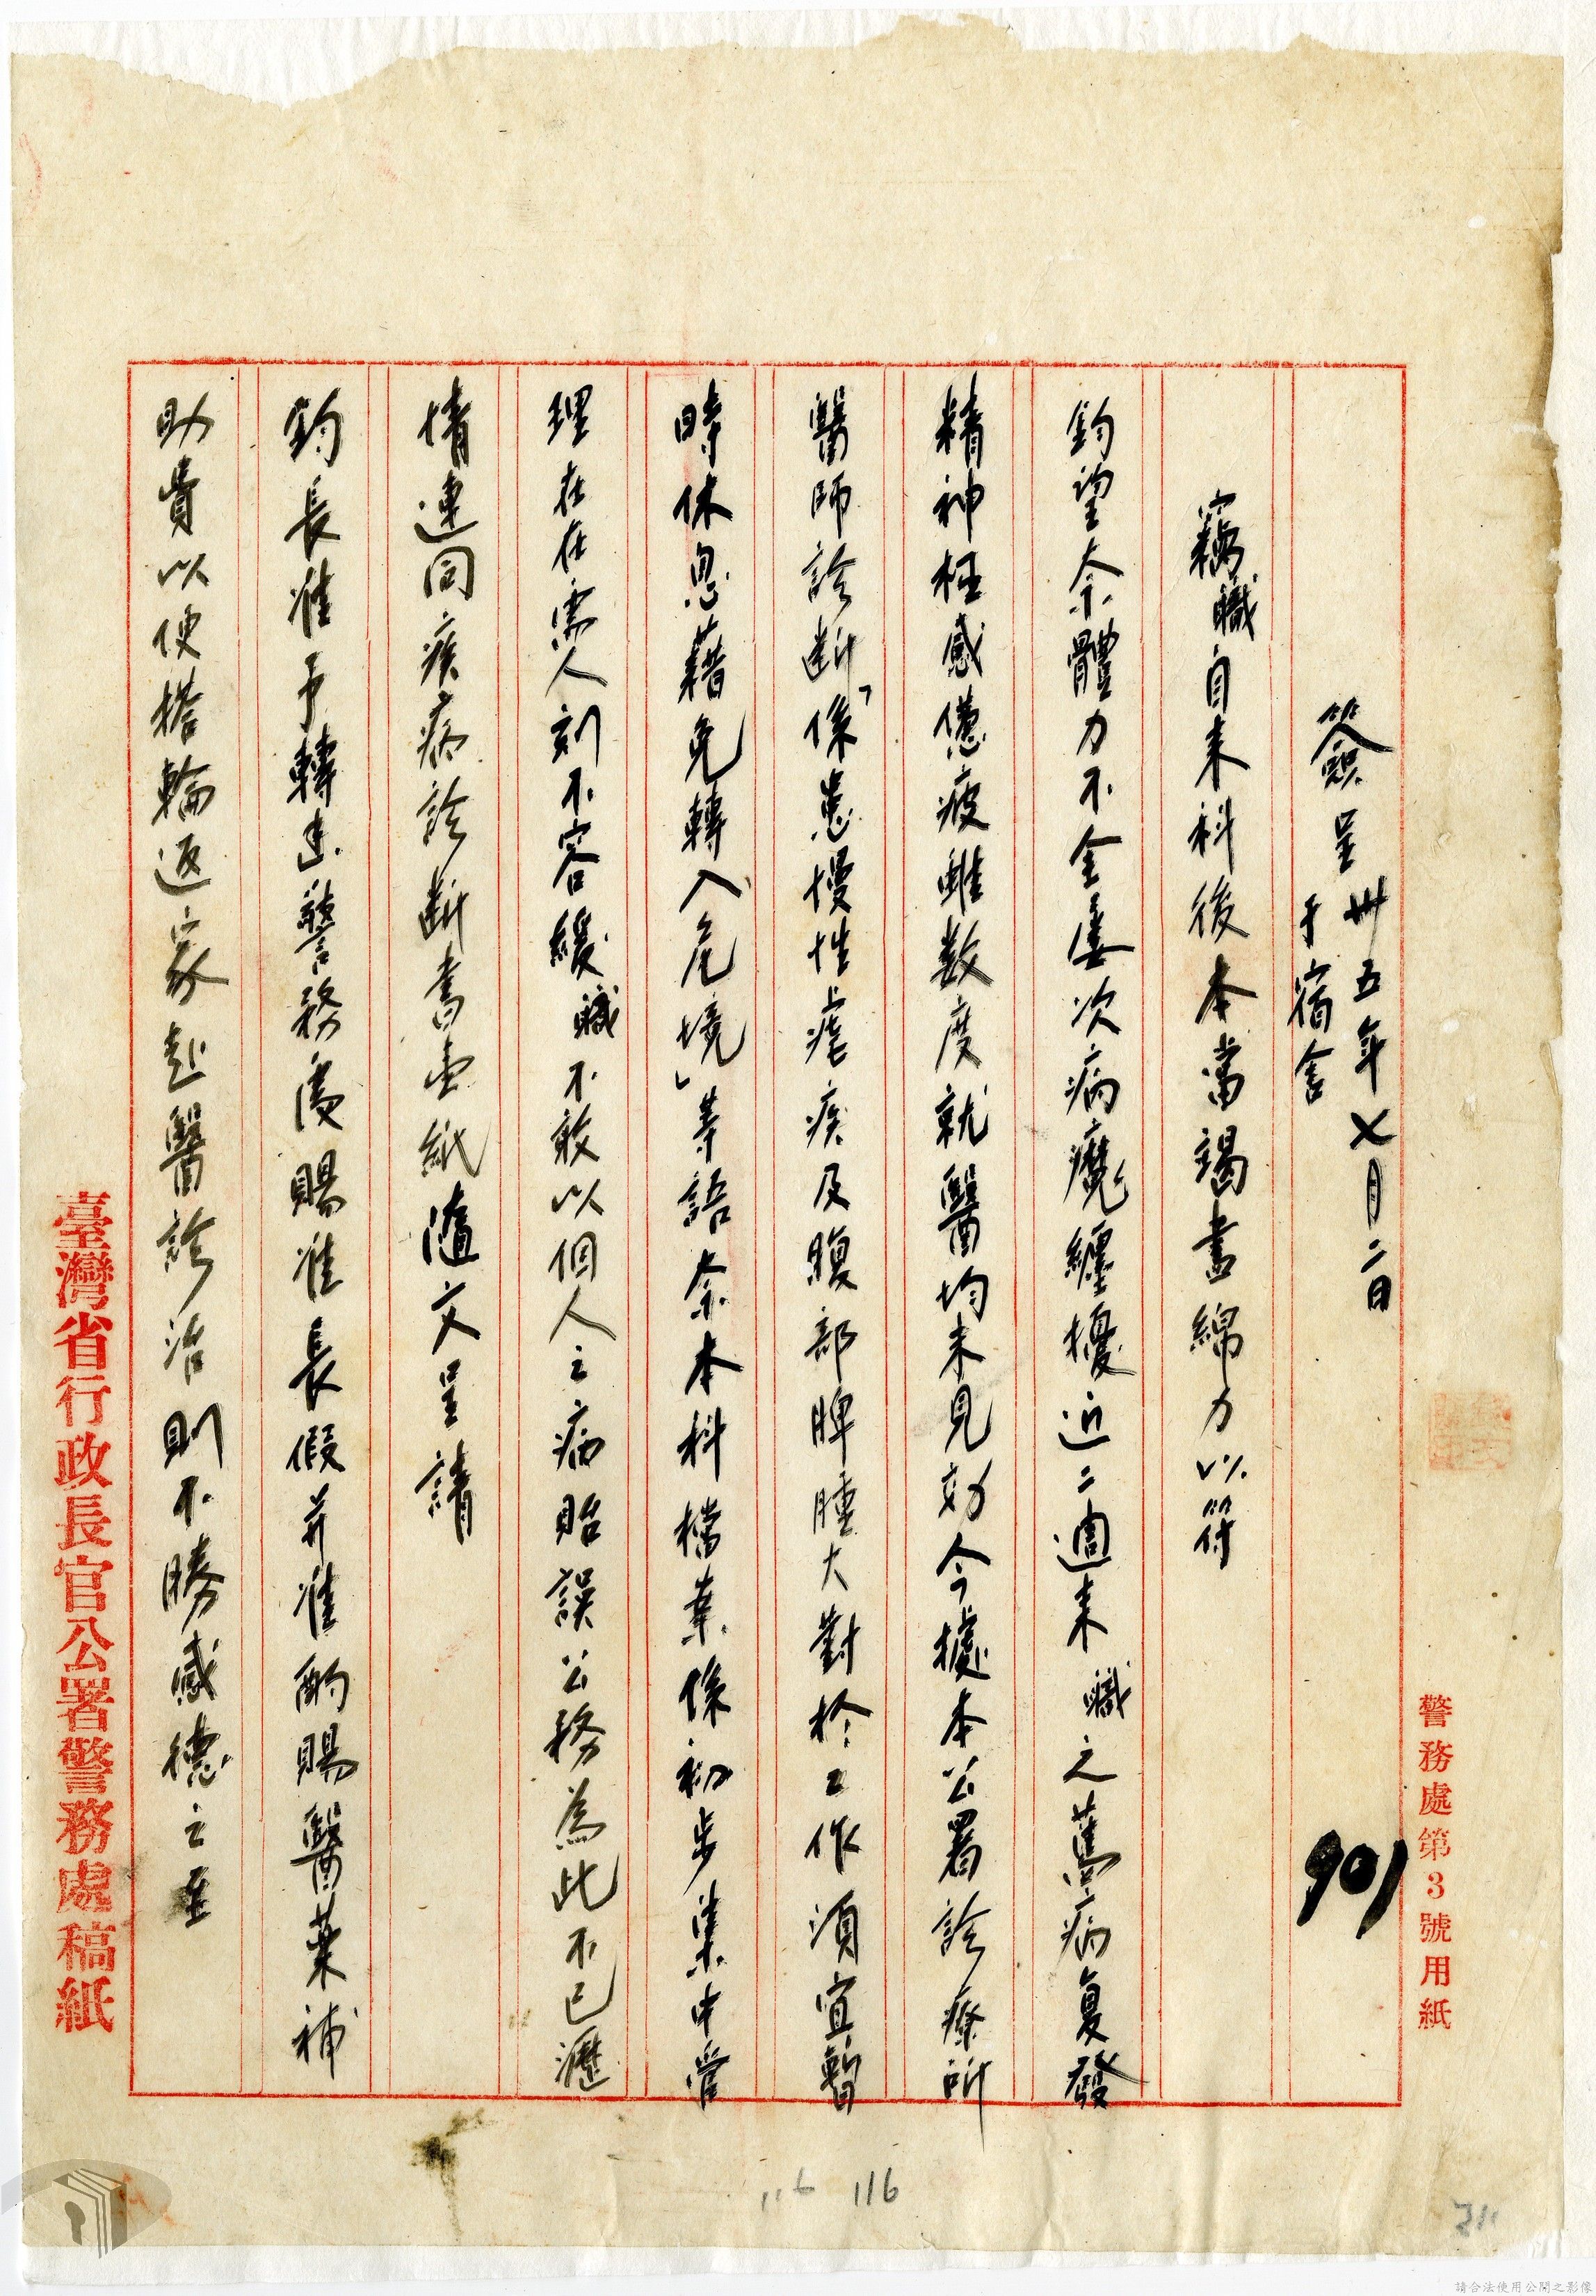 警務處第3號用紙
901
簽呈 卅五年七月二日
于宿舍
竊職自來科後本當竭盡綿力以符
鈞望奈體力不全屢次病魔纏擾近二週來職之舊病复發
精神極感憊疲雖数度就醫均未見効今據本公署診療所
醫師診断「係患慢性瘧疾及腹部脾腫大對於工作須宜暫
時休息藉免轉入危境」等語奈本科檔案係初步集中管
理在在需人刻不容緩職不敢以個人之病貽誤公務為此不已瀝
情連同疾病診断書壹紙隨文呈請
鈞長准予轉出警務處賜准長假并准酌賜醫藥補
助費以便搭輪返家赴醫診治則不勝感德之至
臺灣省行政長官公署警務處稿紙
116
116
請合法使用公開之影像